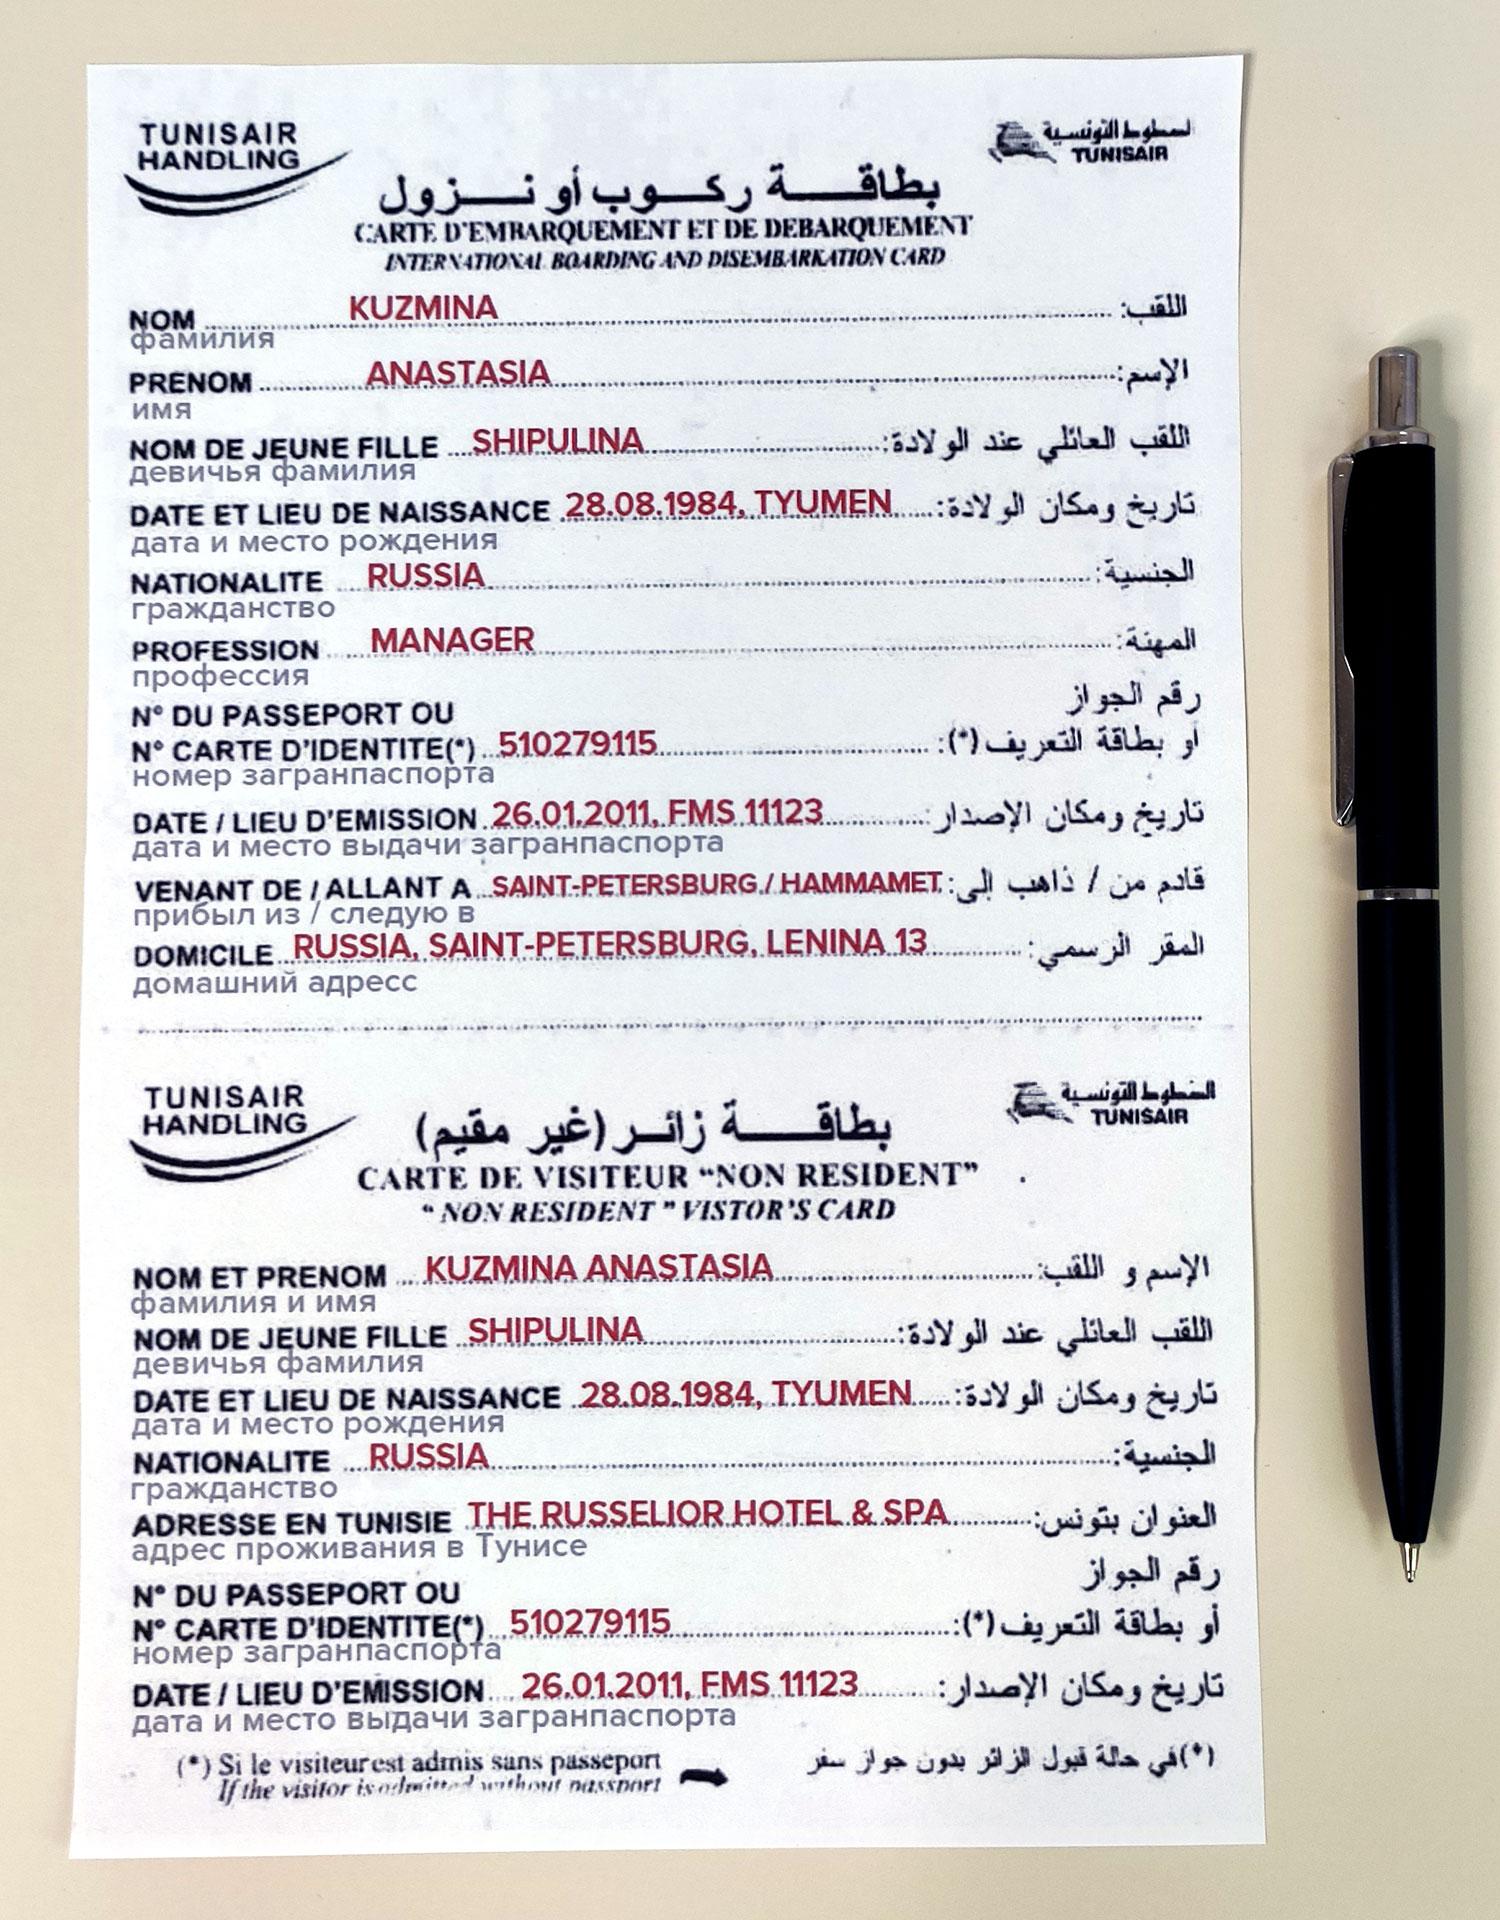 TUNISAIR
HANDLING
TUNISAIR
بطاقـــة ركـــوب أو نـــزول
CARTE D'EMBARQUEMENT ET DE DEBARQUEMENT
INTERNATIONAL BOARDING AND DISEMBARKATION CARD
NOM KUZMINA اللقب:
фамилия
PRENOM ANASTASIA الإسم:
имя
NOM DE JEUNE FILLE SHIPULINA اللقب العائلي عند الولادة:
девичья фамилия
DATE ET LIEU DE NAISSANCE 28.08.1984, TYUMEN تاريخ ومكان الولادة:
дата и место рождения
NATIONALITE RUSSIA الجنسية:
гражданство
PROFESSION MANAGER المهنة:
профессия
N° DU PASSEPORT OU رقم الجواز
N° CARTE D'IDENTITE(*) 510279115 او بطاقة التعريف (*):
номер загранпаспорта
DATE / LIEU D'EMISSION 26.01.2011, FMS 11123 تاريخ ومكان الإصدار:
дата и место выдачи загранпаспорта
VENANT DE / ALLANT A SAINT-PETERSBURG / HAMMAMET قادم من / ذاهب إلى:
прибыл из / следую в
DOMICILE RUSSIA, SAINT-PETERSBURG, LENINA 13 المقر الرسمي:
домашний адресс
TUNISAIR
HANDLING
الخطوط التونسية
TUNISAIR
بطاقـــة زائـــر (غير مقيم)
CARTE DE VISITEUR “NON RESIDENT”
“ NON RESIDENT ” VISTOR'S CARD
NOM ET PRENOM KUZMINA ANASTASIA الإسم و اللقب:
фамилия и имя
NOM DE JEUNE FILLE SHIPULINA اللقب العائلي عند الولادة:
девичья фамилия
DATE ET LIEU DE NAISSANCE 28.08.1984, TYUMEN تاريخ ومكان الولادة:
дата и место рождения
NATIONALITE RUSSIA الجنسية:
гражданство
ADRESSE EN TUNISIE THE RUSSELIOR HOTEL & SPA العنوان بتونس:
адрес проживания в Тунисе
N° DU PASSEPORT OU رقم الجواز
N° CARTE D'IDENTITE(*) 510279115 أو بطاقة التعريف (*):
номер загранпаспорта
DATE / LIEU D'EMISSION 26.01.2011, FMS 11123 تاريخ ومكان الإصدار:
дата и место выдачи загранпаспорта
(*) Si le visiteur est admis sans passeport (*)في حالة قبول الزائر بدون جواز سفر
If the visitor is admitted without passport